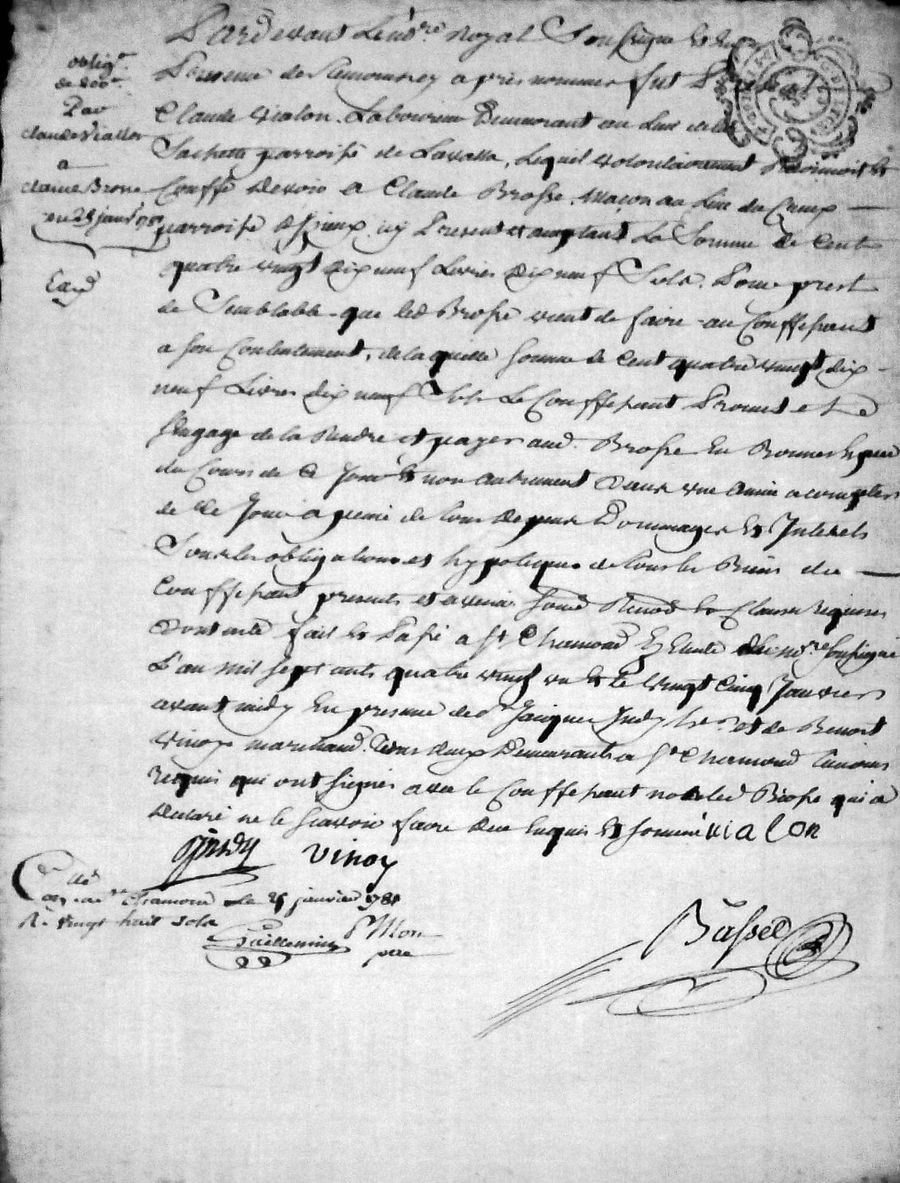 obligon
de 200#
Par
claude Viallon
a
claude Brosse
du 25 janvr 1781
Exd
Pardevant Le nore royal Soussigné Et En
presence des temoins cy apres nommes fut Present
Claude vialon Laboureur Demeurant au Lieu de la
Sachette parroisse de Lavalla, Lequel volontairement
Confesse devoir a Claude Brosse Maçon au Lieu du Creux
parroisse d'izieux icy Present et acceptant La Somme de Cent
quatre vingt dix neuf Livres dix neuf Sols, Pour prest
de Semblable que led Brosse vient de faire au Confessant
a son Contentement, de laquelle somme de Cent quatre vingt dix
neuf Livres dix neuf Sols Le Confessant Promet et
S'engage de la Rendre et payer aud. Brosse En Bonnes Especes
du Cours de Ce Jour Et non autrement Dans une année a compter
de Ce Jour a peine de tous depens Dommages Et Interets
Sous les obligations et hypoteques de tous les Biens du
Confessant presents et avenir Soumis Renonce Et Clauses requises
Dont acte fait Et Passé a St Chamond En Etude du nore soussigné
L'an mil sept cents quatre vingt un Et le vingt Cinq Janvier
avant midy En presence de Sr Jacques Judy et de Benoit
Vinoy marchand Tous deux Demeurants a St Chamond Temoins
Requis qui ont signes avec le Confessant non led Brosse qui a
declaré ne le Scavoir faire de ce Enquis Et sommé vialon
Judy vinoy
Con a St Chamond le 25 janvier 1781
R. vingt huit sols
Guillemin
pere
Basset